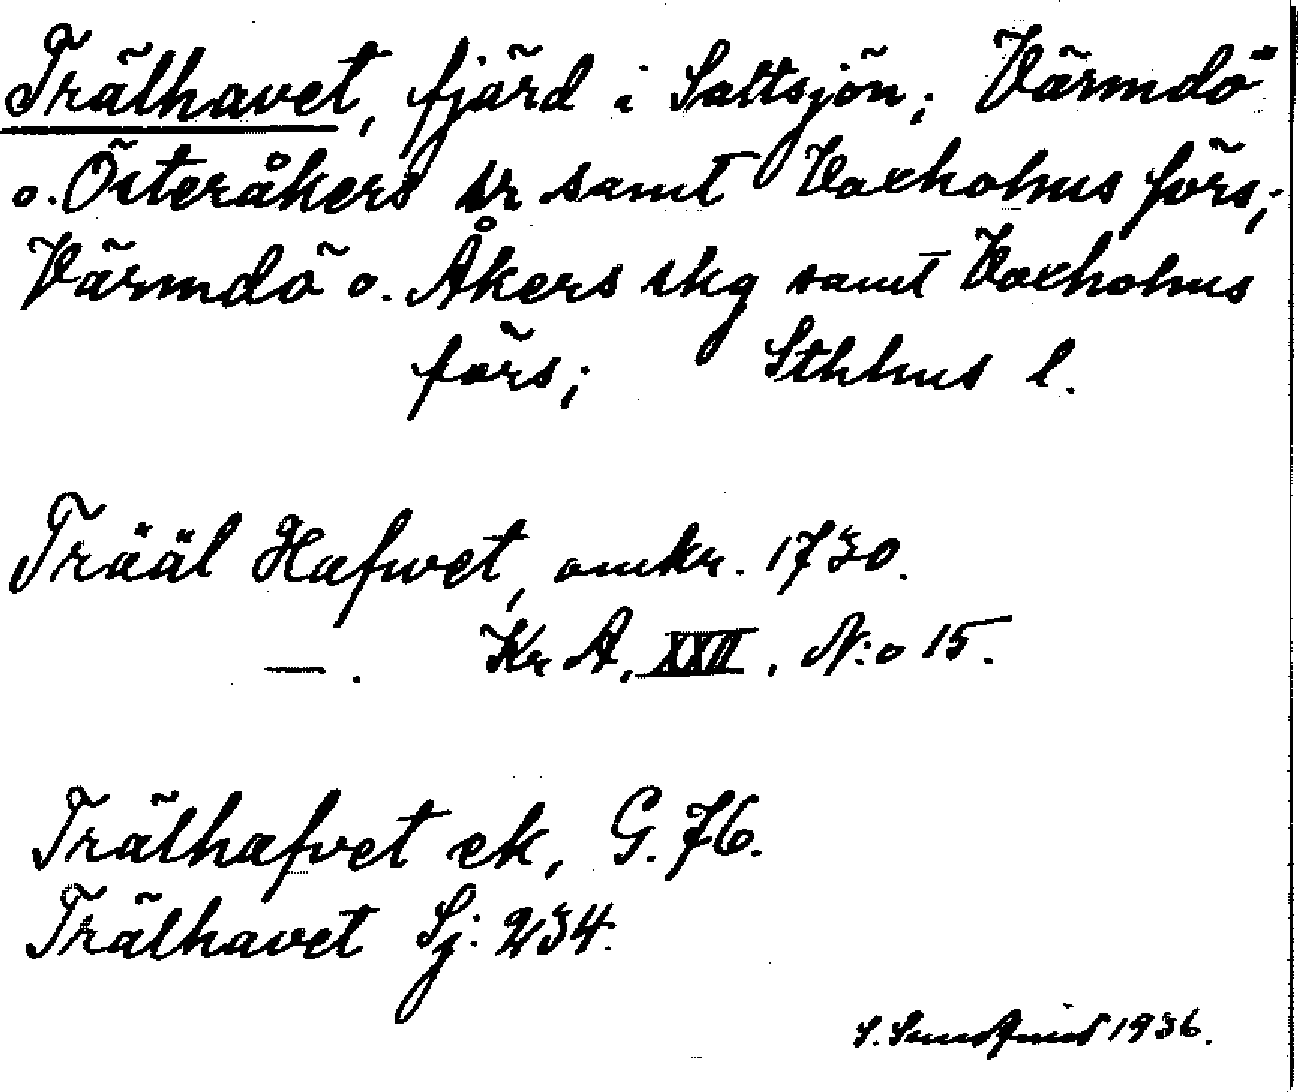 Trälhavet, fjärd i Saltsjön; Värmdö
o. Österåkers sr samt Vaxholms förs;
Värmdö o. Åkers skg samt Vaxholms
förs; Sthlms l.
Trääl Hafwet, omkr. 1730.
— . Kr A, XXII, N:o 15.
Trälhafvet ek, G. 76.
Trälhavet Sj: 234.
S. Sundqvist 1936.